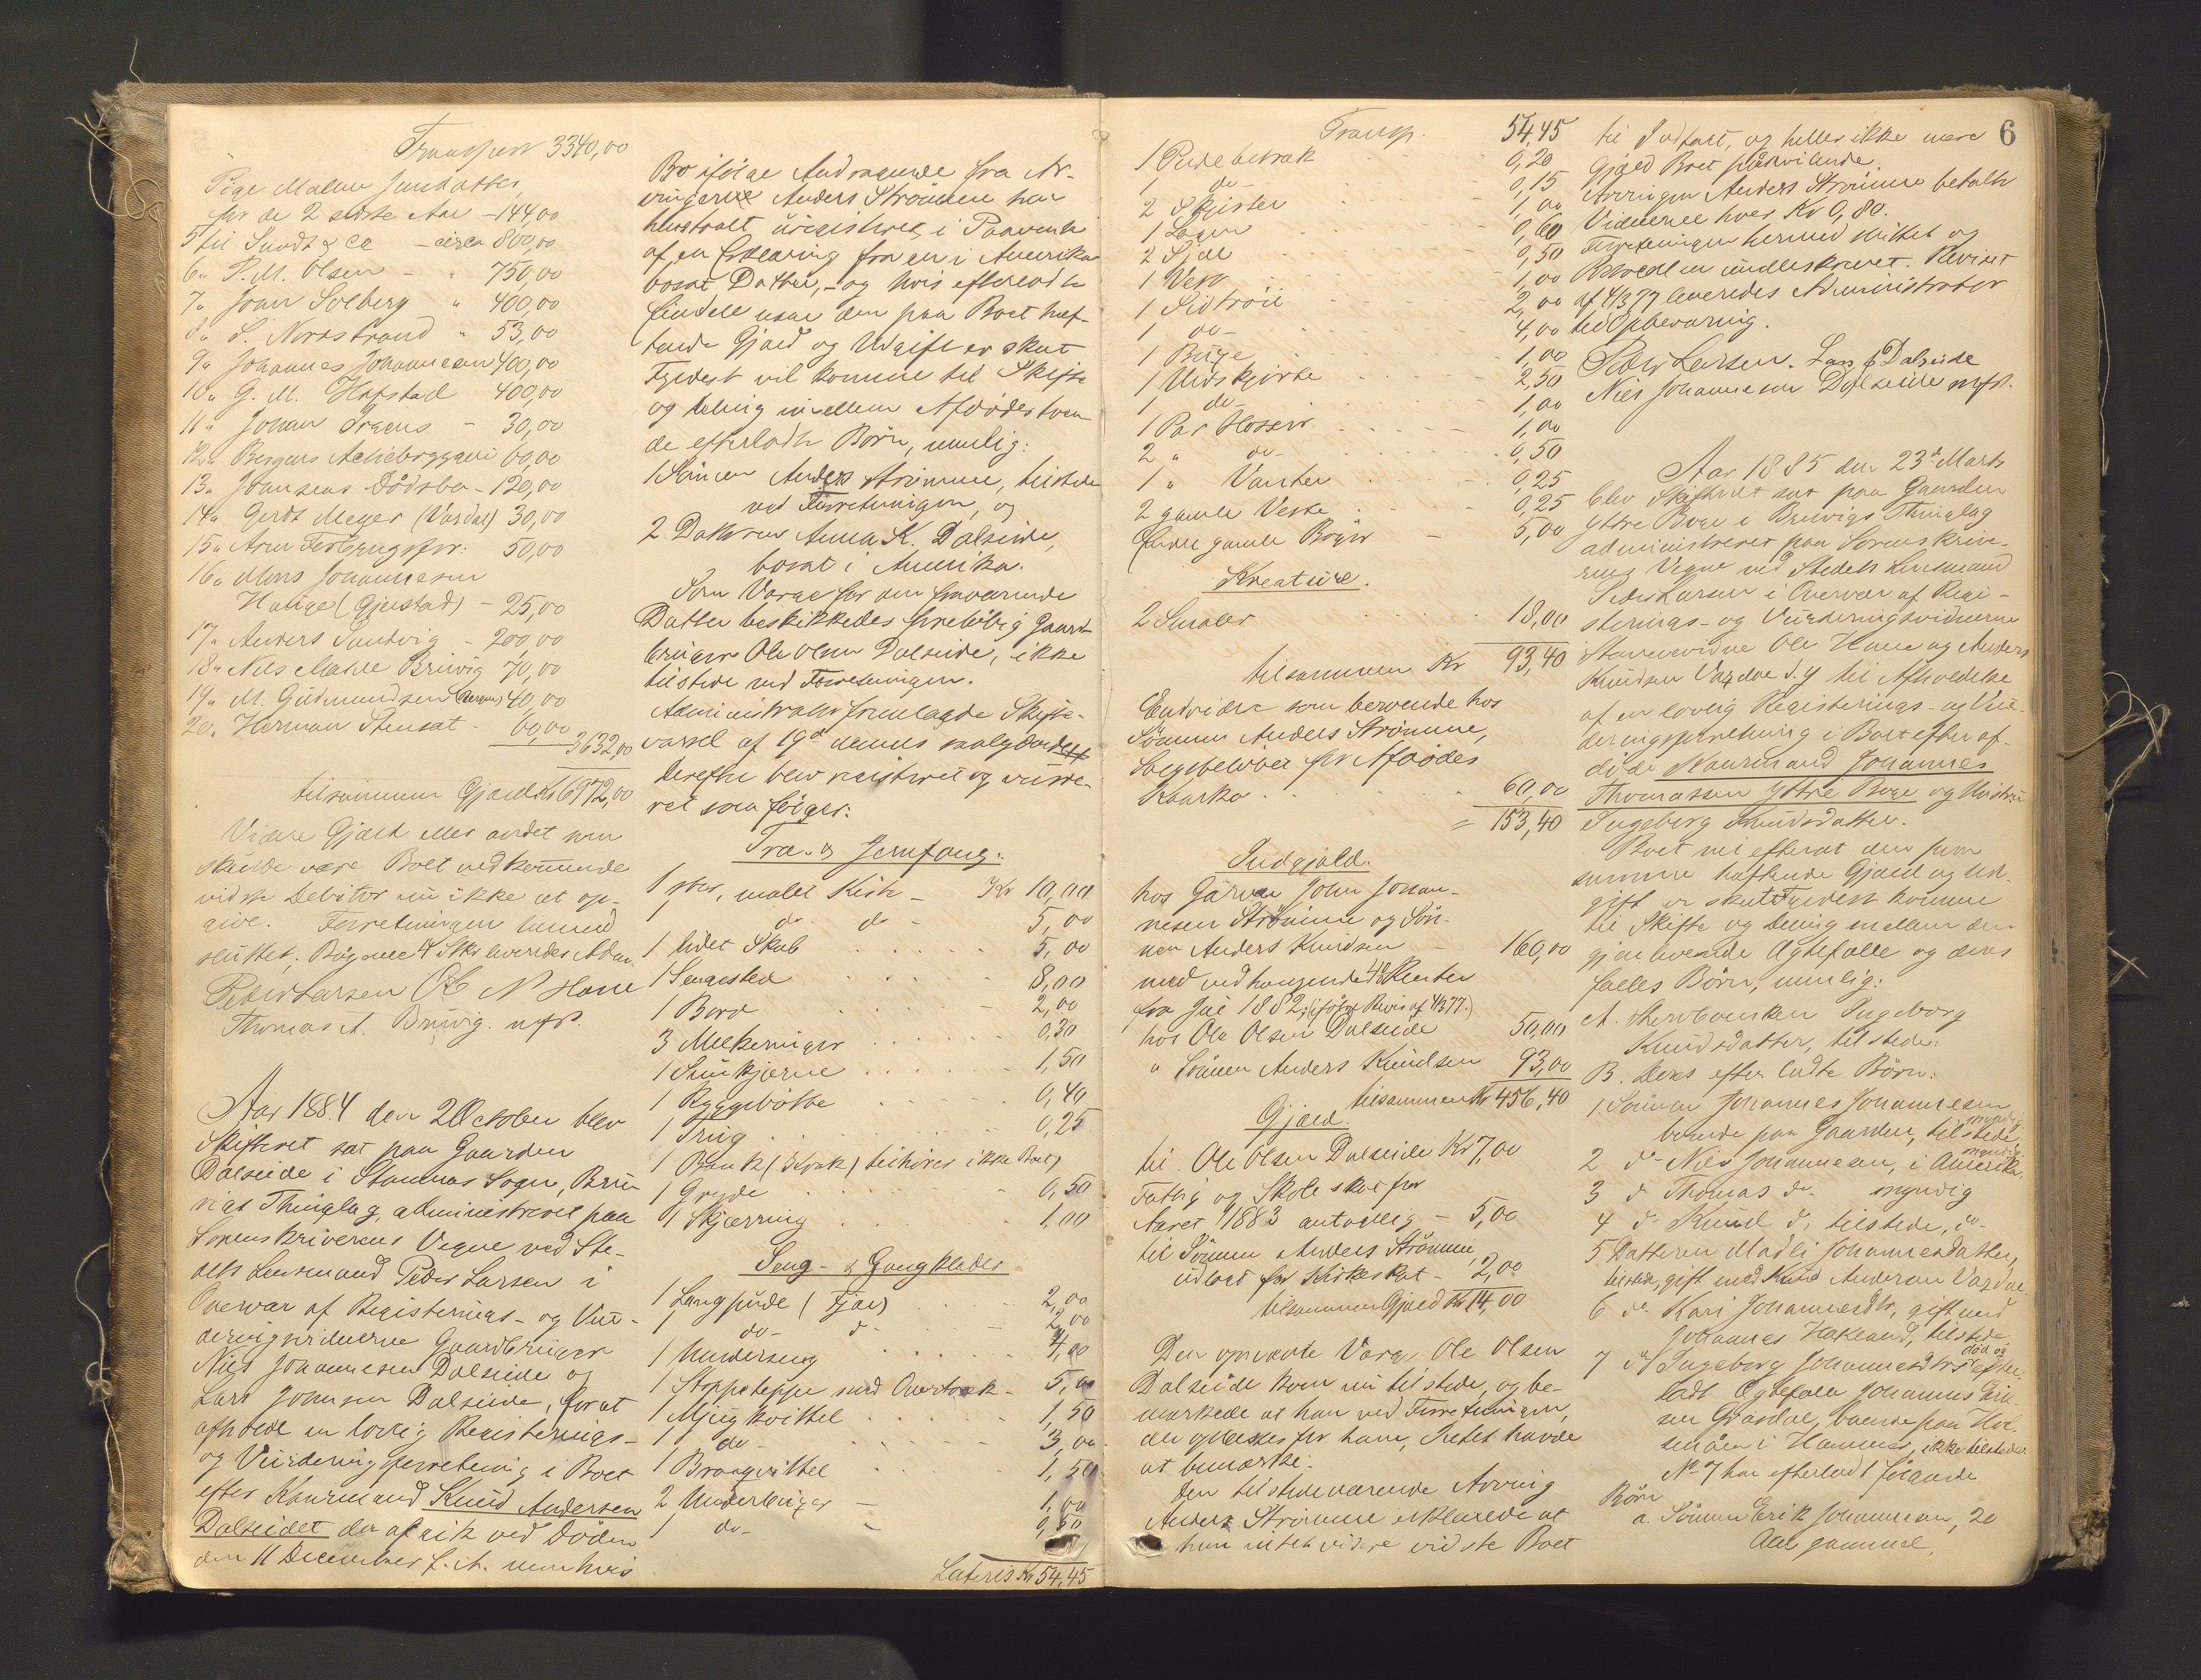 Transport 3340,00
Pige Malene Jensdatter,
for de 2 sidste Aar - 144,00
5 til Sundt & Co - circa 800,00
6" P. M. Olsen - " 750,00
7" Joan Solberg " 400,00
8" S. Nordstrand " 53,00
9" Johannes Johannesen 400,00
10" G. M. Hopstad 400,00
11" Johan Irgens - 30,00
12" Bergens Actiebryggeri 60,00
13" Joansens Dödsbo - 120,00
14" Gerdt Meyer (Vardal) 30,00
15" Arne Fosber 50,00
16" Mons Johannesen
Hauge (Gjerstad) - 25,00
17" Anders Sandvig - 200,00
18" Nils Mahle Bruvig 70,00
19" M. Gudmundsen (Bergen) 40,00
20" Herman Stensat - 60,00
3632,00
tilsammen Gjæld Kr 6972,00
Videre Gjæld eller andet som
skulde være Boet vedkommende
vidste Debitor nu ikke at op-
give. Forretningen hermed
sluttet. Bögerne 4 Stkr leveredes Adm.
Peder Larsen Ole N Hane
Thomas A. Bruvig. mfP.
Aar 1884 den 2 October blev
Skifteret sat paa Gaarden
Dalseide i Stamnæs Sogn, Bru-
vigs Thinglag, administreret paa
Sorenskriverens Vegne ved Ste-
dets Lensmand Peder Larsen i
Overvær af Registerings- og Vur-
deringsvidnerne Gaardbruger
Nils Johannesen Dalseide og
Lars Joansen Dalseide, for at
afholde en lovlig Registerings-
og Vurderingsforretning i Boet
efter Kaarmand Knud Andersen
Dalseidet der afgik ved Döden
den 11 December f. A. men hvis
Bo ifölge Andragende fra Ar-
vingerne Anders Strömme har
henstaaet uregistreret, i Paavente
af en Erklæring fra en i Amerika
bosat Datter, - og hvis efterladte
Eiendele naar den paa Boet hef-
tende Gjæld og Udgift er skeet
Fyldest vil komme til Skifte
og deling imellem Afdödes tven-
de efterladte Börn, nemlig:
1 Sönnen Anders Strömme, tilstede
ved Forretningen, og
2 Datteren Anna K. Dalseide,
bosat i Amerika.
Som Værge for den fraværende
Datter beskikkedes foreløbig Gaard-
bruger Ole Olsen Dalseide, ikke
tilstede ved Forretningen.
Administrator fremlagde Skifte-
varsel af 19de dennes
Derefter blev registreret og vurde-
ret som fölger:
Træ- og Jernfang:
1 stor, malet Kiste - Kr 10,00
1 do do - 5,00
1 lidet Skab 5,00
1 Sengested 8,00
1 Bord 2,00
3 Melkeringer 0,30
1 Smörkjerne 1,50
1 Ryggebötte 0,40
1 Trug 0,25
1 Bænk ( ) tilhörer ikke Boet)
1 Gryde 0,50
1 Skjærring 1,00
Seng- & Gangklæder
1 Langpude (Fjær) 2,00
1 do- d- 2,00
1 Underseng 4,00
1 Stoppeteppe med Overtræk - 5,00
1 Mjugkvittel 1,50
1 do- 3,00
1 Brogvittel 1,50
2 Underbuxer 1,00
1 do- 0,50
Lateris Kr 54,45
6
Transp. 54,45
1 Pudebetræk 0,20
1 do- 0,15
2 Skjorter 1,00
1 Lagen 0,60
2 Sjæl 0,50
1 Vest 1,00
1 Sidtröie 2,00
1 do- 4,00
1 Buxe 1,00
1 Uldskjorte 2,50
1 do- 1,00
1 Par Hoser 1,00
2 " do- 0,50
1 " Vanter 0,25
2 gamle Veste 0,25
Endel gamle Böger - 5,00
Kreature.
2 Smaler 18,00
tilsammen Kr 93,40
Endvidere som beroende hos
Sönnen Anders Strömme,
Salgsbelöbet for Afdödes
Kaarko 60,00
= 153,40
Indgjæld.
hos Garver John Johan-
nesen Strömme og Sön-
nen Anders Knudsen - 160,00
med vedhængende 4% Renter
fra Jul 1882, (ifölge Revis af 4/3 77.)
hos Ole Olsen Dalseide 50,00
" Sönnen Anders Knudsen 93,00
tilsammen Kr 456,40
Gjæld.
til Ole Olsen Dalseide Kr 7,00
Fattig og Skoleskat for
Aaret 1883 antagelig - 5,00
til Sönnen Anders Strömme,
udlagt for Kirkeskat - 2,00
tilsammen Gjæld Kr 14,00
Den opnævnte Værge, Ole Olsen
Dalseide kom nu tilstede, og be-
mærkede at han ved Forretningen,
der oplæstes for ham, Intet havde
at bemærke.
Den tilstedeværende Arving
Anders Strömme erklærede at
han intet videre vidste Boet
til Indtægt, og heller ikke mere
Gjæld Boet paahvilende.
Arvingen Anders Strömme betalte
Vidnerne hver Kr 0,80.
Forretningen hermed sluttet og
Protocollen underskrevet. Reviset
af 4/3 77 leveredes Administrator
til Opbevaring.
Peder Larsen. Lars J Dalseide
Nils Johannesen Dalseide mfP.
Aar 1885 den 23de Marts
blev Skifteret sat paa Gaarden
Ytre Boge i Bruvigs Thinglag
administreret paa Sorenskrive-
rens Vegne ved Stedets Lensmand
Peder Larsen i Overvær af Regi-
sterings- og Vurderingsvidnerne
Stevnevidne Ole Hane og Anders
Knudsen Vaxdal d. y til Afholdelse
af en lovlig Registerings- og Vur-
deringsforretning i Boet efter af-
döde Kaarmand Johannes
Thomassen Ytre Boge og Hustru
Ingeborg Knudsdatter.
Boet vil efterat den
samme heftende Gjæld og Ud-
gift er skeet Fyldest komme
til Skifte og Deling mellem den
gjenlevende Ægtefælle og deres
fælles Börn, nemlig:
A. Enkekonen Ingeborg
Knudsdatter, tilstede:
B. Deres efterladte Börn:
1. Sönnen Johannes Johannesen
boende paa Gaarden, myndig tilstede,
2 d- Nils Johannesen, i Amerika, myndig
3 d. Thomas d- myndig
4 d- Knud d, tilstede, do-
5 Datteren Madli Johannesdatter,
tilstede, gift med Knud Andersen Vaxdal.
6 do Kari Johannesdtr, gift med
Johannes Hækland, tilstede,
7 do Ingeborg Johannesdtr död og efter-
ladt Ægtefælle Johannes Erik-
sen Gråsdal, boende paa Hol-
 i Hammer, ikke tilstede
No 7 har efterladt fölgende
Börn
a. Sönnen Erik Johannesen, 20
Aar gammel,